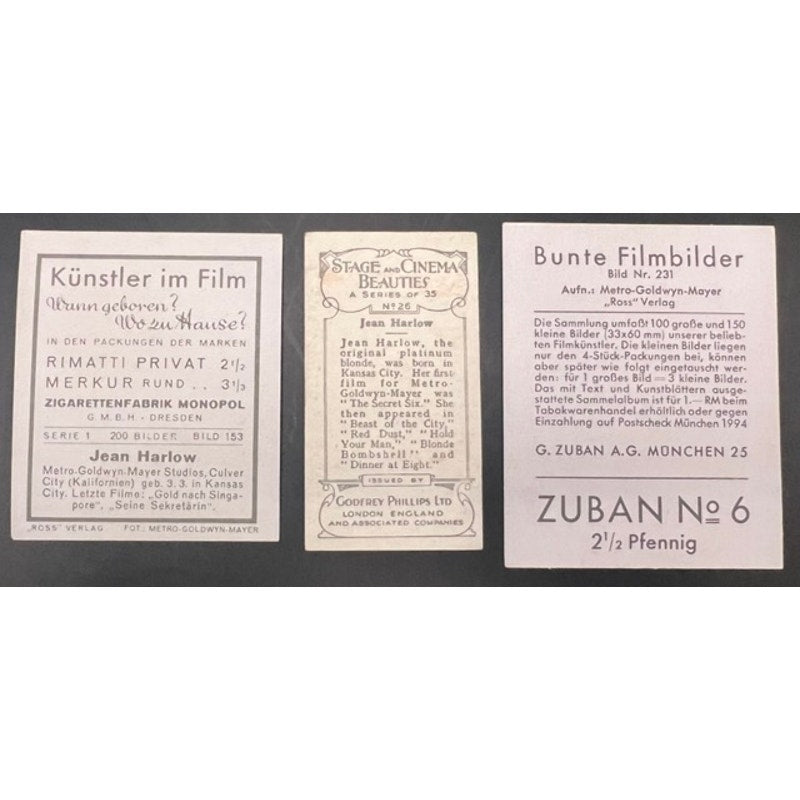 Künstler im Film
Wann geboren?
Wo zu Hause?
IN DEN PACKUNGEN DER MARKEN
RIMATTI PRIVAT 2 1/2
MERKUR RUND . . 3 1/3
ZIGARETTENFABRIK MONOPOL
G.M.B.H • DRESDEN
SERIE 1 200 BILDER BILD 153
Jean Harlow
Metro-Goldwyn-Mayer Studios, Culver
City (Kalifornien) geb. 3. 3. in Kansas
City. Letzte Filme: „Gold nach Singa-
pore“, „Seine Sekretärin“.
„ROSS“ VERLAG FOT.: METRO-GOLDWYN-MAYER
STAGE AND CINEMA
BEAUTIES
A SERIES OF 35
No 26
Jean Harlow
Jean Harlow, the
original platinum
blonde, was born in
Kansas City. Her first
film for Metro-
Goldwyn-Mayer was
"The Secret Six." She
then appeared in
"Beast of the City,"
"Red Dust," "Hold
Your Man," "Blonde
Bombshell" and
"Dinner at Eight."
ISSUED BY
GODFREY PHILLIPS LTD
LONDON ENGLAND
AND ASSOCIATED COMPANIES
Bunte Filmbilder
Bild Nr. 231
Aufn.: Metro-Goldwyn-Mayer
„Ross“ Verlag
Die Sammlung umfaßt 100 große und 150
kleine Bilder (33x60 mm) unserer belieb-
ten Filmkünstler. Die kleinen Bilder liegen
nur den 4-Stück-Packungen bei, können
aber später wie folgt eingetauscht wer-
den: für 1 großes Bild = 3 kleine Bilder.
Das mit Text und Kunstblättern ausge-
stattete Sammelalbum ist für 1.— RM beim
Tabakwarenhandel erhältlich oder gegen
Einzahlung auf Postscheck München 1994
G. ZUBAN A.G. MÜNCHEN 25
ZUBAN No 6
2 1/2 Pfennig